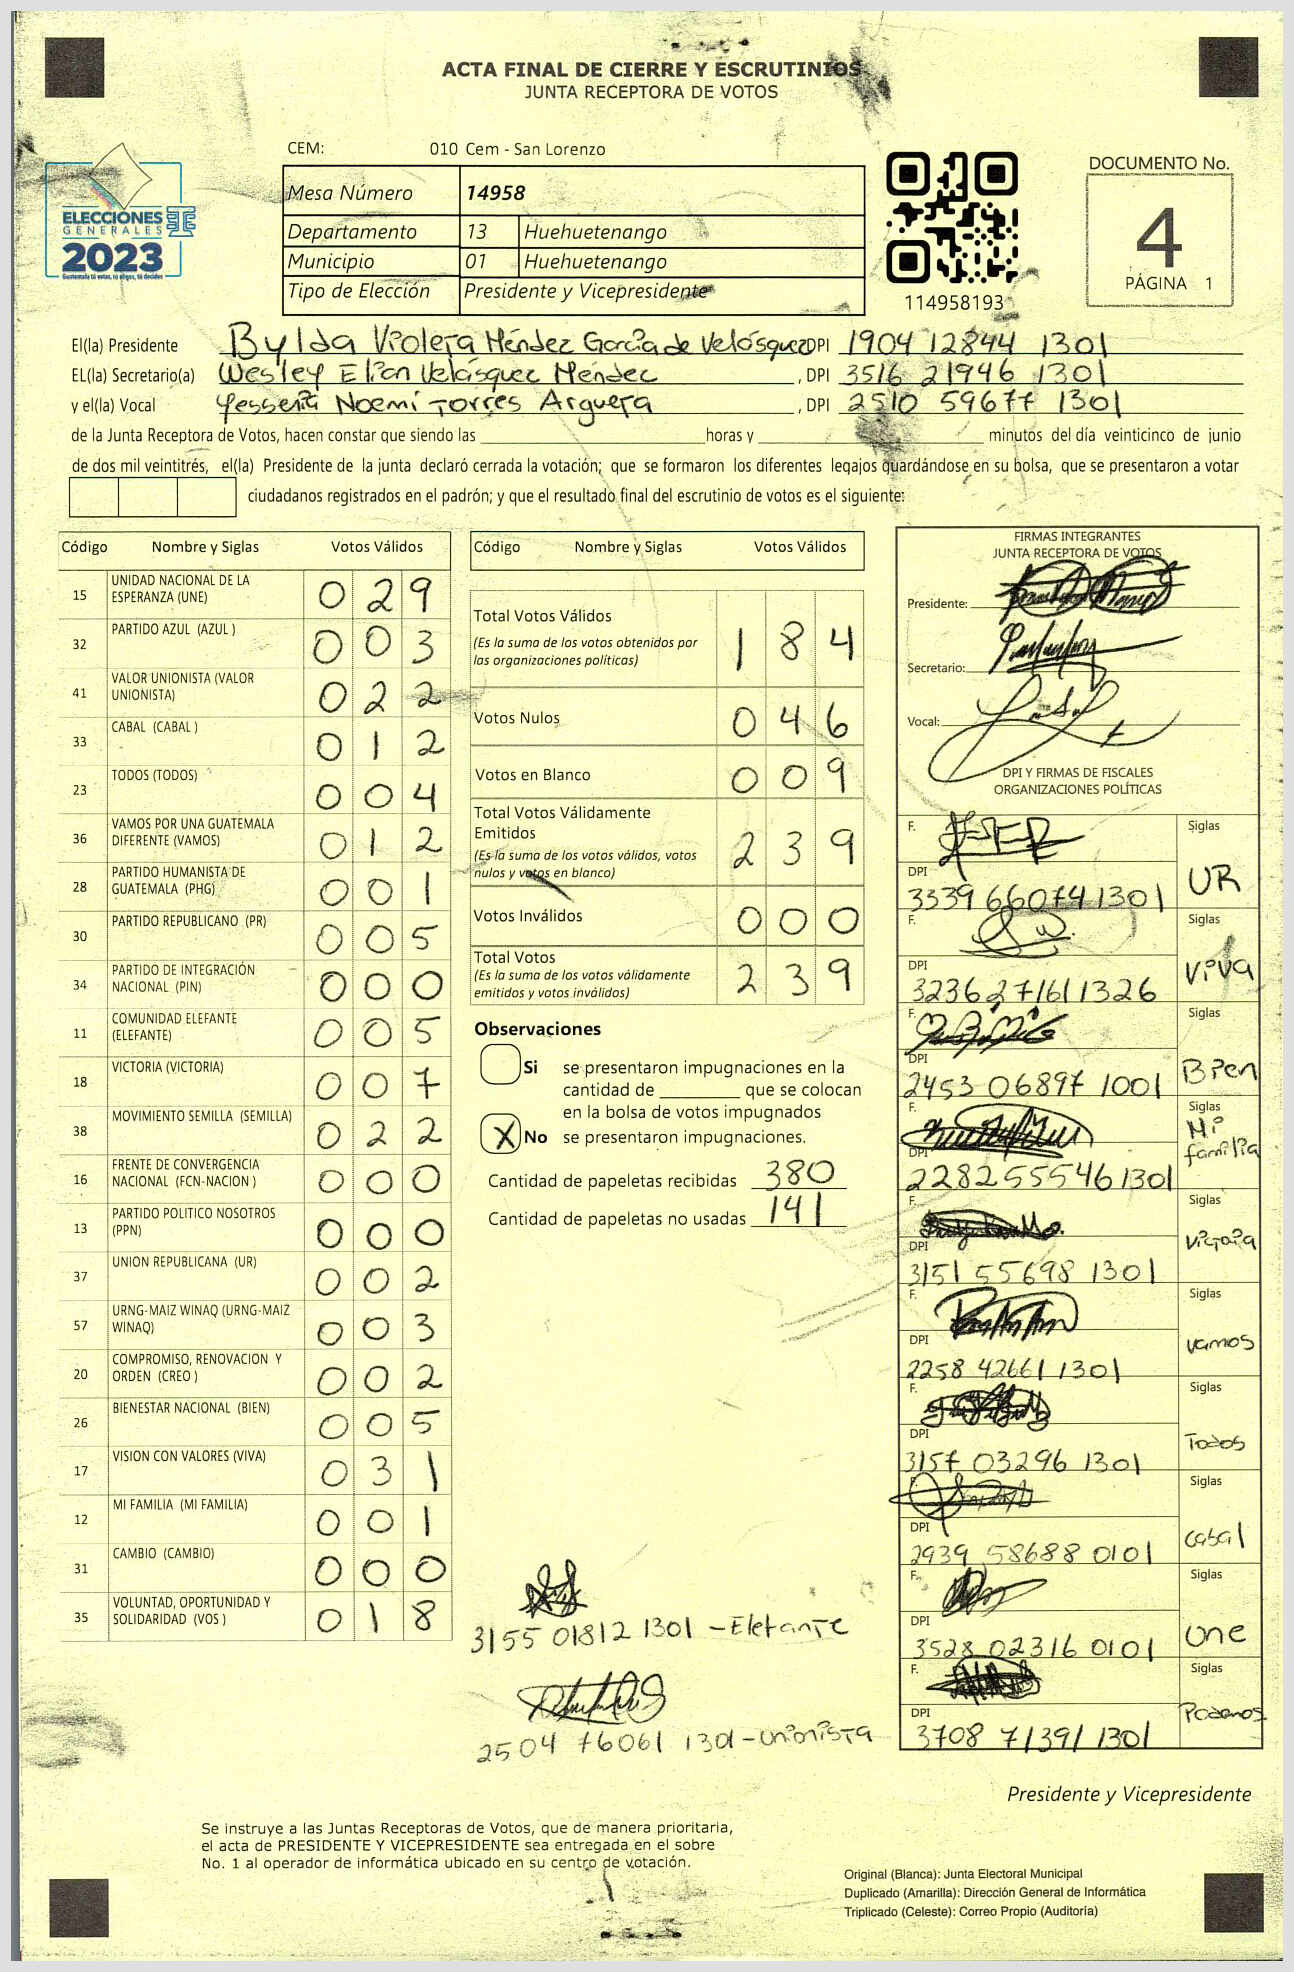 ACTA FINAL DE CIERRE Y ESCRUTINIOS
JUNTA RECEPTORA DE VOTOS
CEM: 010 Cem - San Lorenzo
Mesa Número 14958
Departamento 13 Huehuetenango
Municipio 01 Huehuetenango
Tipo de Elección Presidente y Vicepresidente
ELECCIONES
GENERALES
2023
Guatemala tú votas, tú eliges, tú decides
114958193
DOCUMENTO No.
4
PÁGINA 1
El(la) Presidente Bylda Violeta Méndez García de Velásquez DPI 1904 12844 1301
EL(la) Secretario(a) Wesley Elian Velásquez Méndez , DPI 3516 21946 1301
y el(la) Vocal Yessenia Noemí Torres Argueta , DPI 2510 59677 1301
de la Junta Receptora de Votos, hacen constar que siendo las horas y minutos del día veinticinco de junio
de dos mil veintitrés, el(la) Presidente de la junta declaró cerrada la votación; que se formaron los diferentes legajos guardándose en su bolsa, que se presentaron a votar
ciudadanos registrados en el padrón; y que el resultado final del escrutinio de votos es el siguiente:
Código Nombre y Siglas Votos Válidos
15 UNIDAD NACIONAL DE LA ESPERANZA (UNE) 029
32 PARTIDO AZUL (AZUL ) 003
41 VALOR UNIONISTA (VALOR UNIONISTA) 022
33 CABAL (CABAL ) 012
23 TODOS (TODOS) 004
36 VAMOS POR UNA GUATEMALA DIFERENTE (VAMOS) 012
28 PARTIDO HUMANISTA DE GUATEMALA (PHG) 001
30 PARTIDO REPUBLICANO (PR) 005
34 PARTIDO DE INTEGRACIÓN NACIONAL (PIN) 000
11 COMUNIDAD ELEFANTE (ELEFANTE) 005
18 VICTORIA (VICTORIA) 007
38 MOVIMIENTO SEMILLA (SEMILLA) 022
16 FRENTE DE CONVERGENCIA NACIONAL (FCN-NACION ) 000
13 PARTIDO POLITICO NOSOTROS (PPN) 000
37 UNION REPUBLICANA (UR) 002
57 URNG-MAIZ WINAQ (URNG-MAIZ WINAQ) 003
20 COMPROMISO, RENOVACION Y ORDEN (CREO ) 002
26 BIENESTAR NACIONAL (BIEN) 005
17 VISION CON VALORES (VIVA) 031
12 MI FAMILIA (MI FAMILIA) 001
31 CAMBIO (CAMBIO) 000
35 VOLUNTAD, OPORTUNIDAD Y SOLIDARIDAD (VOS ) 018
Código Nombre y Siglas Votos Válidos
Total Votos Válidos 184
(Es la suma de los votos obtenidos por
las organizaciones políticas)
Votos Nulos 046
Votos en Blanco 009
Total Votos Válidamente
Emitidos 239
(Es la suma de los votos válidos, votos
nulos y votos en blanco)
Votos Inválidos 000
Total Votos 239
(Es la suma de los votos válidamente
emitidos y votos inválidos)
Observaciones
Si se presentaron impugnaciones en la
cantidad de que se colocan
en la bolsa de votos impugnados
X No se presentaron impugnaciones.
Cantidad de papeletas recibidas 380
Cantidad de papeletas no usadas 141
3155 01812 1301 - Elefante
2504 76061 1301 - Unionista
FIRMAS INTEGRANTES
JUNTA RECEPTORA DE VOTOS
Presidente:
Secretario:
Vocal:
DPI Y FIRMAS DE FISCALES
ORGANIZACIONES POLÍTICAS
F. Siglas
DPI UR
3339 66074 1301
F. Siglas
DPI VIVA
3236 27161 1326
F. Siglas
DPI Bien
2453 06897 1001
F. Siglas
DPI Mi familia
2282 55546 1301
F. Siglas
DPI Victoria
3151 55698 1301
F. Siglas
DPI Vamos
2258 42661 1301
F. Siglas
DPI Todos
3157 03296 1301
F. Siglas
DPI Cabal
2939 58688 0101
F. Siglas
DPI Une
3528 02316 0101
F. Siglas
DPI Podemos
3708 71391 1301
Presidente y Vicepresidente
Se instruye a las Juntas Receptoras de Votos, que de manera prioritaria,
el acta de PRESIDENTE Y VICEPRESIDENTE sea entregada en el sobre
No. 1 al operador de informática ubicado en su centro de votación.
Original (Blanca): Junta Electoral Municipal
Duplicado (Amarilla): Dirección General de Informática
Triplicado (Celeste): Correo Propio (Auditoría)